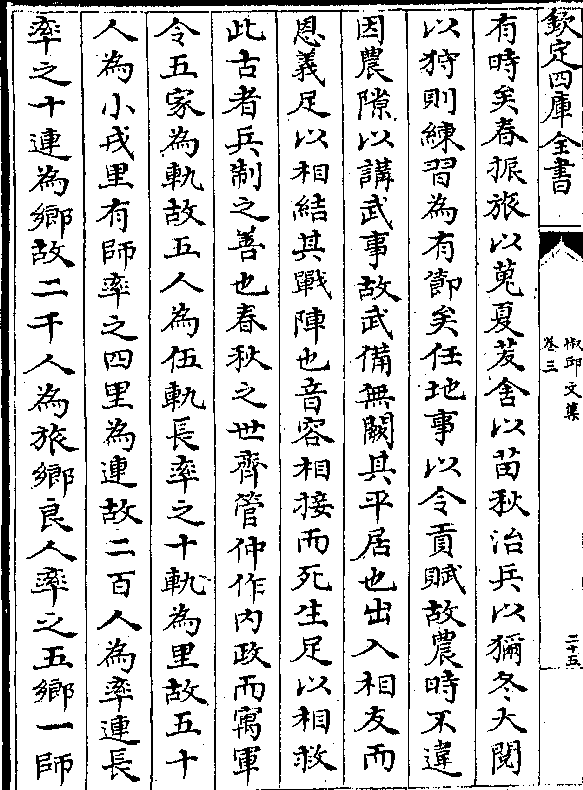 欽定四庫全書
椒邱文集
卷三
二十五
有時矣春振旅以蒐夏茇舍以苗秋治兵以獮冬大閱
以狩則練習為有節矣任地事以令貢賦故農時不違
因農隙以講武事故武備無闕其平居也出入相友而
恩義足以相結其戰陣也音容相接而死生足以相救
此古者兵制之善也春秋之世齊管仲作内政而寓軍
令五家為軌故五人為伍軌長率之十軌為里故五十
人為小戎里有師率之四里為連故二百人為率連長
率之十連為鄉故二千人為旅鄉良人率之五鄉一師